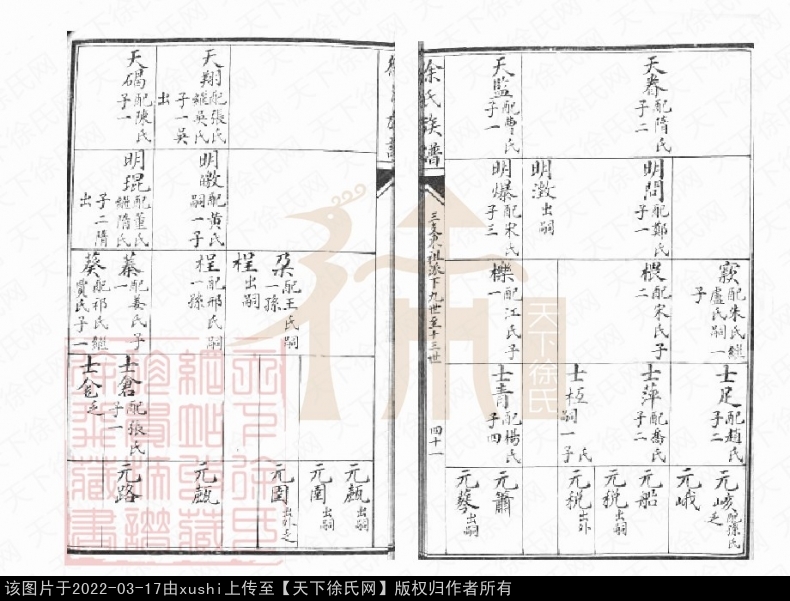 天眷配隋氏子二
天監配曹氏子一
明問配鄭氏子一
明激出嗣
明爆配宋氏子三
寳配朱氏繼盧氏嗣一子
椳配宋氏子二
櫟配江氏子一
士足配趙氏子二
士萍配喬氏子二
士桓嗣一子
士青配楊氏子四
元峨
元船
元税出嗣
元税出外
元簫
元蔡出嗣
徐氏族譜
三支東祖派下九世至十三世
四十一
天翔配張氏繼吳氏子一吳出
天碣配陳氏子一
明皦配黄氏嗣一子
明琨配董氏繼隋氏子二隋出
朶配王氏嗣一孫
桯出嗣
桯配邢氏嗣一孫
蓁配姜氏子一
葵配祁氏繼賈氏子一
士倉配張氏子一
士乏
元甗出嗣
元圄出嗣
元圉出外乏
元甗
元路
天下徐氏
该图片于2022-03-17由xushi上传至【天下徐氏网】版权归作者所有